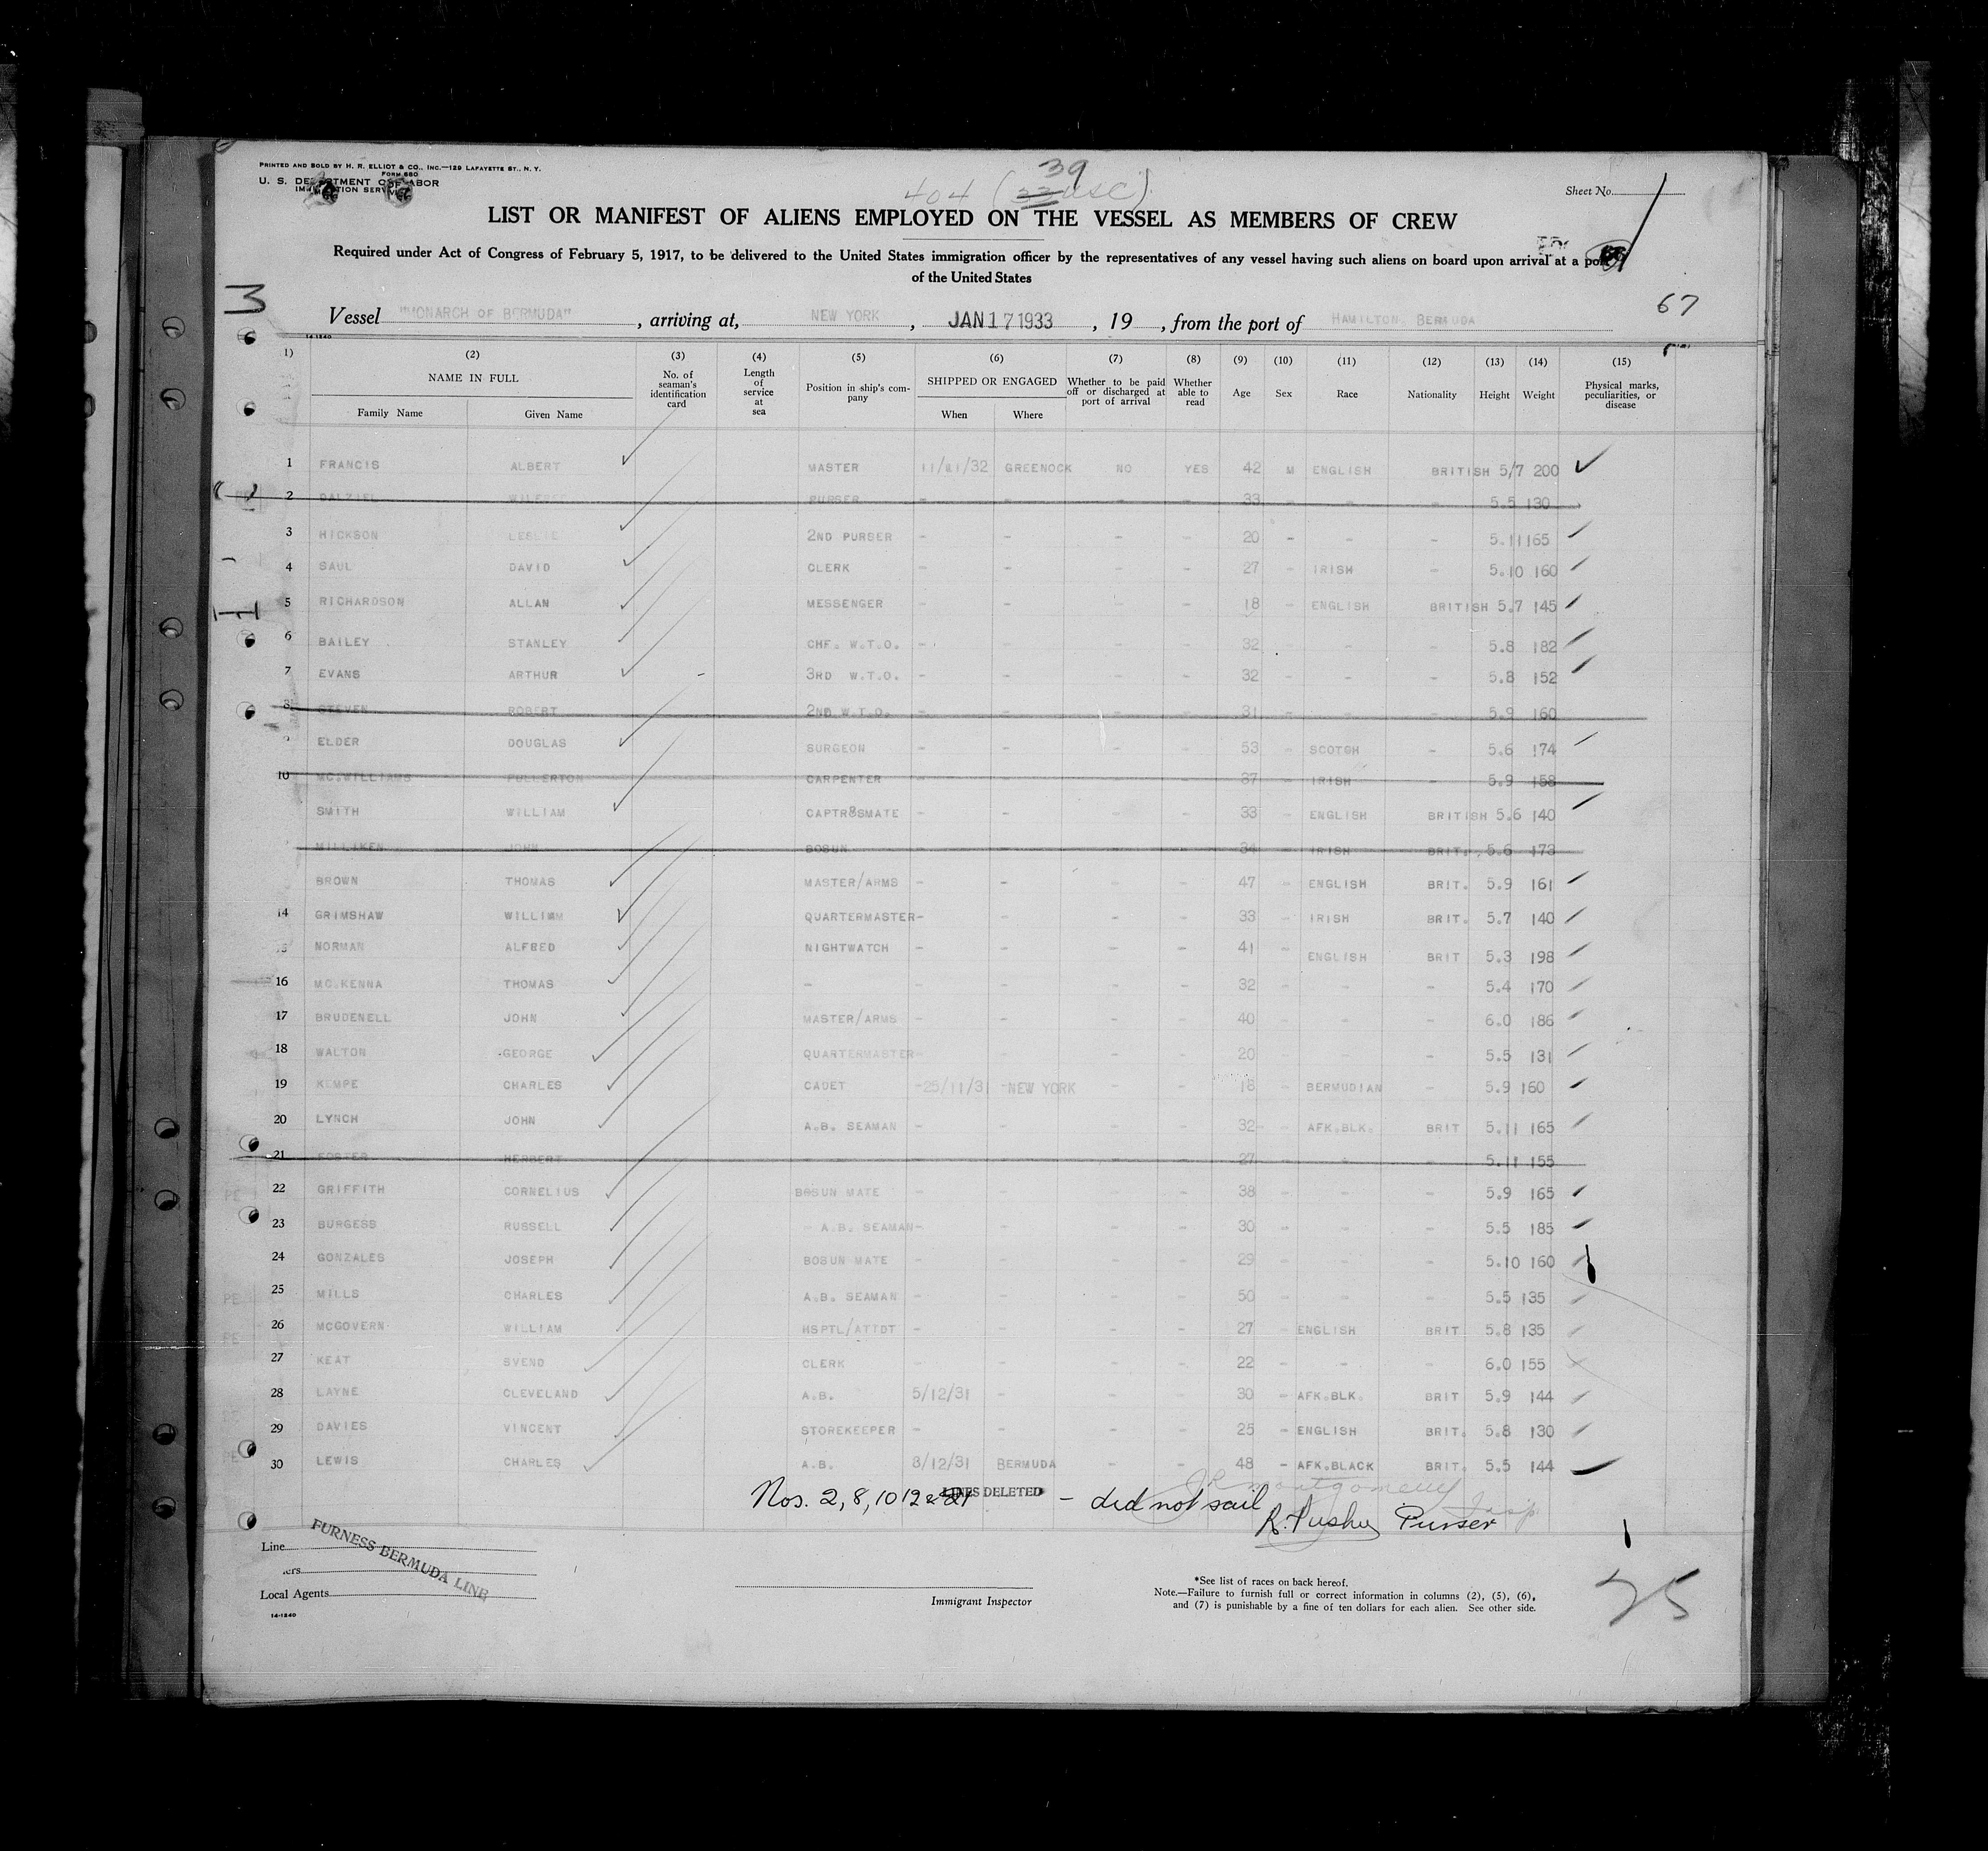 PRINTED AND SOLD BY H. R. ELLIOT & CO., INC.—129 LAFAYETTE ST., N. Y.
FORM 680
U. S. DEPARTMENT OF LABOR
IMMIGRATION SERVICE
39
404 (33 USC)
Sheet No.
LIST OR MANIFEST OF ALIENS EMPLOYED ON THE VESSEL AS MEMBERS OF CREW
Required under Act of Congress of February 5, 1917, to be delivered to the United States immigration officer by the representatives of any vessel having such aliens on board upon arrival at a port
of the United States
3
67
Vessel "MONARCH OF BERMUDA", arriving at, NEW YORK, JAN 17 1933, 19, from the port of HAMILTON BERMUDA
14-1240
1) (2) (3) (4) (5) (6) (7) (8) (9) (10) (11) (12) (13) (14) (15)
NAME IN FULL Family Name Given Name No. of seaman's identification card Length of service at sea Position in ship's company SHIPPED OR ENGAGED When Where Whether to be paid off or discharged at port of arrival Whether able to read Age Sex Race Nationality Height Weight Physical marks, peculiarities, or disease
1 FRANCIS ALBERT MASTER 11/11/32 GREENOCK NO YES 42 M ENGLISH BRITISH 5/7 200
2 DALZIEL WILFRED PURSER - - - - 33 - - - 5.5 130
3 HICKSON LESLIE 2ND PURSER - - - - 20 - - - 5.11 165
4 SAUL DAVID CLERK - - - - 27 - IRISH - 5.10 160
5 RICHARDSON ALLAN MESSENGER - - - - 18 - ENGLISH BRITISH 5.7 145
6 BAILEY STANLEY CHF. W.T.O. - - - - 32 - - - 5.8 182
7 EVANS ARTHUR 3RD W.T.O. - - - - 32 - - - 5.8 152
8 STEVEN ROBERT 2ND W.T.O. - - - - 31 - - - 5.9 160
ELDER DOUGLAS SURGEON - - - - 53 - SCOTCH - 5.6 174
10 MC.WILLIAMS FULLERTON CARPENTER - - - - 37 - IRISH - 5.9 158
SMITH WILLIAM CAPTR8SMATE - - - - 33 - ENGLISH BRITISH 5.6 140
MILLIKEN JOHN BOSUN - - - - 34 - IRISH BRIT. 5.6 173
BROWN THOMAS MASTER/ARMS - - - - 47 - ENGLISH BRIT. 5.9 161
14 GRIMSHAW WILLIAM QUARTERMASTER - - - - 33 - IRISH BRIT. 5.7 140
15 NORMAN ALFRED NIGHTWATCH - - - - 41 - ENGLISH BRIT 5.3 198
16 MC.KENNA THOMAS - - - - - 32 - - - 5.4 170
17 BRUDENELL JOHN MASTER/ARMS - - - - 40 - - - 6.0 186
18 WALTON GEORGE QUARTERMASTER - - - - 20 - - - 5.5 131
19 KEMPE CHARLES CADET -25/11/31 -NEW YORK - - 18 - BERMUDIAN - 5.9 160
20 LYNCH JOHN A.B. SEAMAN - - - - 32 - AFK.BLK. BRIT 5.11 165
21 FOSTER HERBERT - - - - - 27 - - - 5.11 155
22 GRIFFITH CORNELIUS BOSUN MATE - - - - 38 - - - 5.9 165
23 BURGESS RUSSELL A.B. SEAMAN - - - - 30 - - - 5.5 185
24 GONZALES JOSEPH BOSUN MATE - - - - 29 - - - 5.10 160
25 MILLS CHARLES A.B. SEAMAN - - - - 50 - - - 5.5 135
26 MCGOVERN WILLIAM HSPTL/ATTDT - - - - 27 - ENGLISH BRIT 5.8 135
27 KEAT SVEND CLERK - - - - 22 - - - 6.0 155
28 LAYNE CLEVELAND A.B. 5/12/31 - - - 30 - AFK.BLK. BRIT 5.9 144
29 DAVIES VINCENT STOREKEEPER - - - - 25 - ENGLISH BRIT. 5.8 130
30 LEWIS CHARLES A.B. 8/12/31 BERMUDA - - 48 - AFK.BLACK BRIT. 5.5 144
Nos. 2, 8, 10 12 & 21 LINES DELETED - did not sail
Montgomery Insp
Purser
Line
FURNESS BERMUDA LINE
Local Agents
14-1240
Immigrant Inspector
*See list of races on back hereof.
Note.—Failure to furnish full or correct information in columns (2), (5), (6),
and (7) is punishable by a fine of ten dollars for each alien. See other side.
25